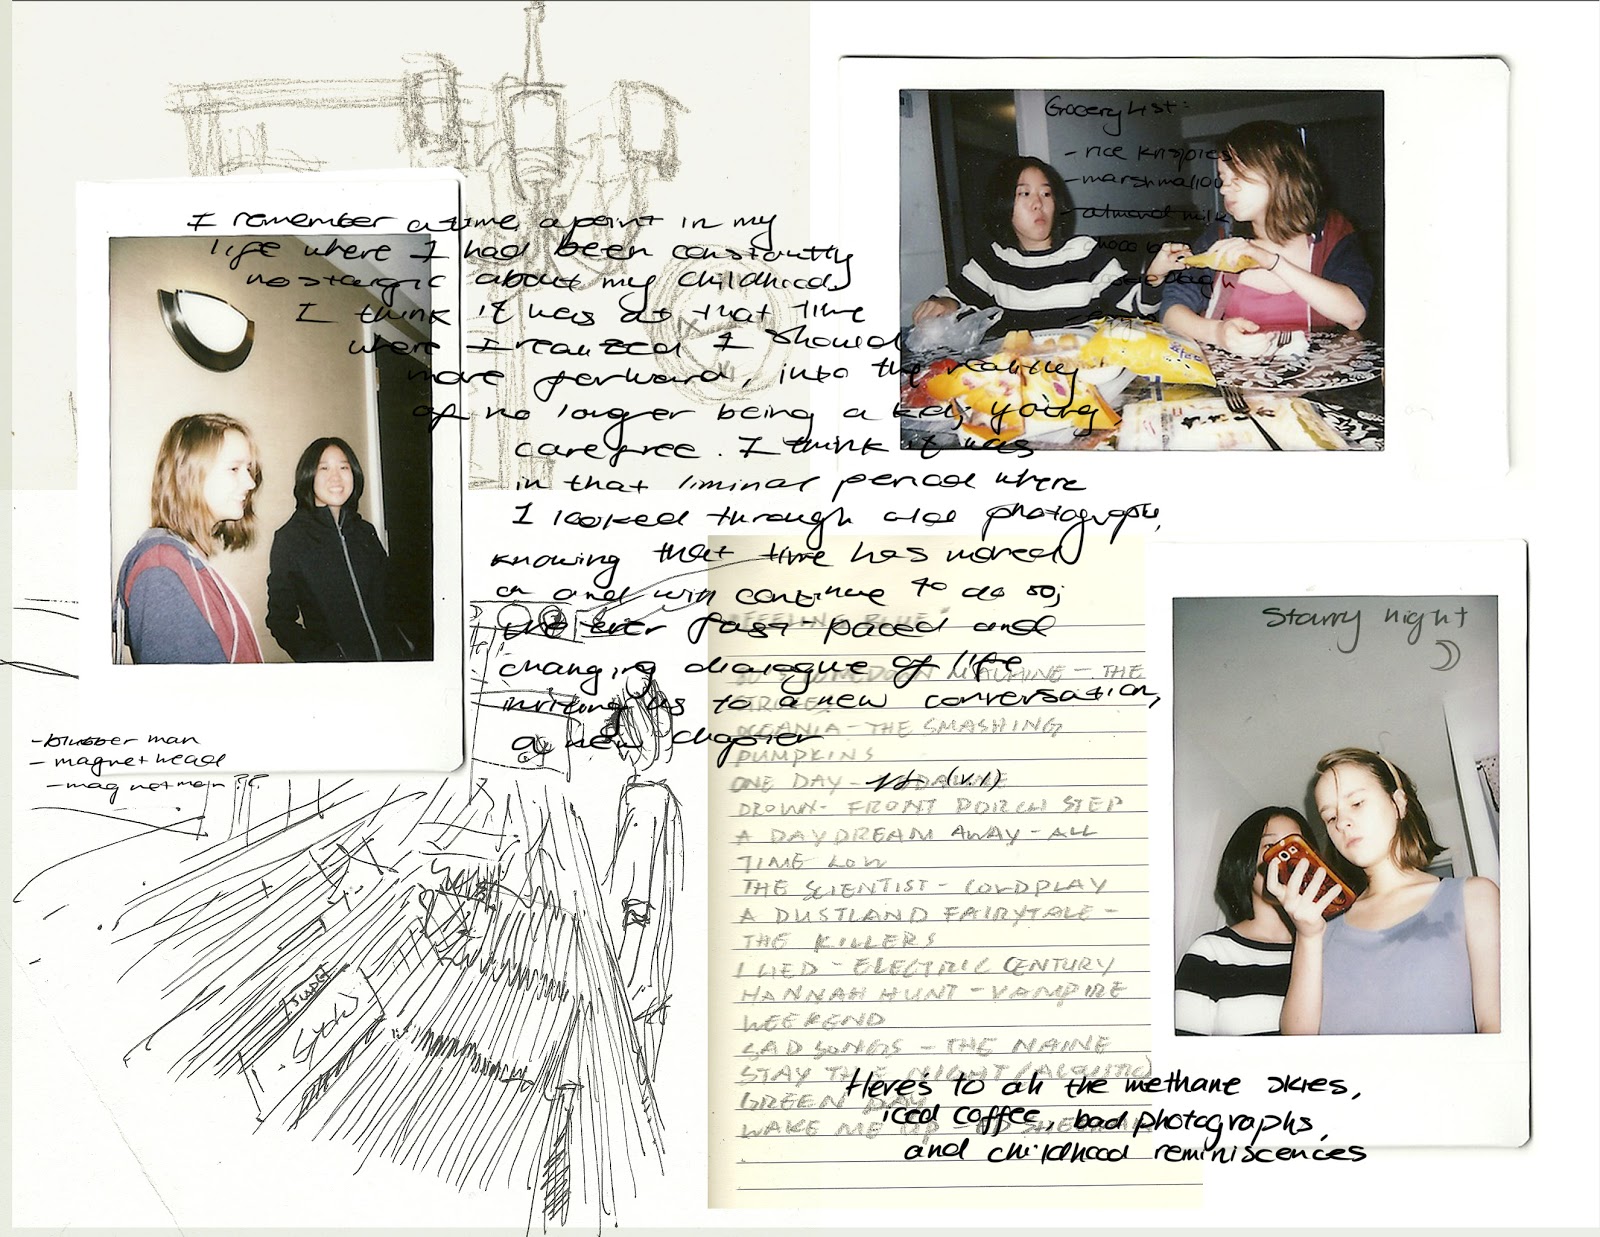 I remember a time, a point in my
life where I had been constantly
nostargic about my childhood.
I think it was at that time
where I realized I should
move forward, into the reality
of no longer being a kid; young,
carefree. I think it was
in that liminal period where
I looked through old photographs,
knowing that time has moved
on and will continue to do so;
the ever fast-paced and
changing dialogue of life
inviting us to a new conversation,
a new chapter
Grocery List:
- rice krispies
- marshmallow
- almond milk
- choco
- cookie dough
- eggs
- blubber man
- magnet head
- magnet man
JUDGE
FEELING BLUE
MACHINE - THE
OCEANIA - THE SMASHING
PUMPKINS
ONE DAY -
(v.1)
DROWN - FRONT PORCH STEP
A DAYDREAM AWAY - ALL
TIME LOW
THE SCIENTIST - COLDPLAY
A DUSTLAND FAIRYTALE -
THE KILLERS
I LIED - ELECTRIC CENTURY
HANNAH HUNT - VAMPIRE
WEEKEND
SAD SONGS - THE MAINE
STAY THE NIGHT (ACOUSTIC)
GREEN DAY
WAKE ME UP - ED SHEERAN
Starry night
Here's to all the methane skies,
iced coffee, bad photographs,
and childhood reminiscences